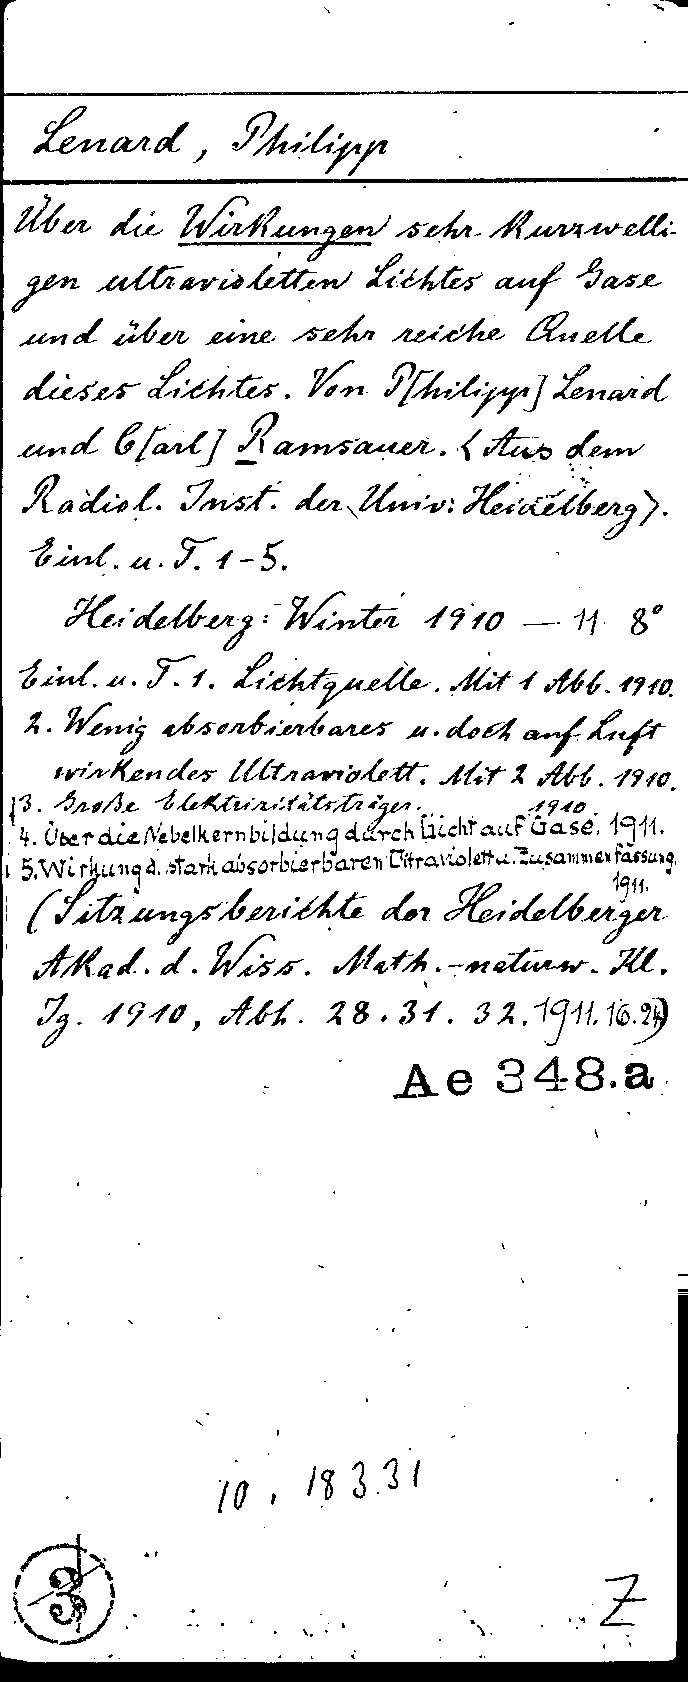 Lenard, Philipp
Über die Wirkungen sehr kurzwelli-
gen ultravioletten Lichtes auf Gase
und über eine sehr reiche Quelle
dieses Lichtes. Von P[hilipp] Lenard
und C[arl] Ramsauer. <Aus dem
Radiol. Inst. der Univ: Heidelberg>.
Einl. u. T. 1-5.
Heidelberg: Winter 1910 — 11 8°
Einl. u. T. 1. Lichtquelle. Mit 1 Abb. 1910.
2. Wenig absorbierbares u. doch auf Luft
wirkendes Ultraviolett. Mit 2 Abb. 1910.
3. Große Elektrizitätsträger. 1910.
4. Über die Nebelkernbildung durch Licht auf Gase. 1911.
5. Wirkung d. stark absorbierbaren Ultraviolett u. Zusammenfassung.
1911.
(Sitzungsberichte der Heidelberger
Akad. d. Wiss. Math.-naturw. Kl.
Jg. 1910, Abh. 28. 31. 32. 1911. 16. 24)
Ae 348.a
10. 18331
3
Z